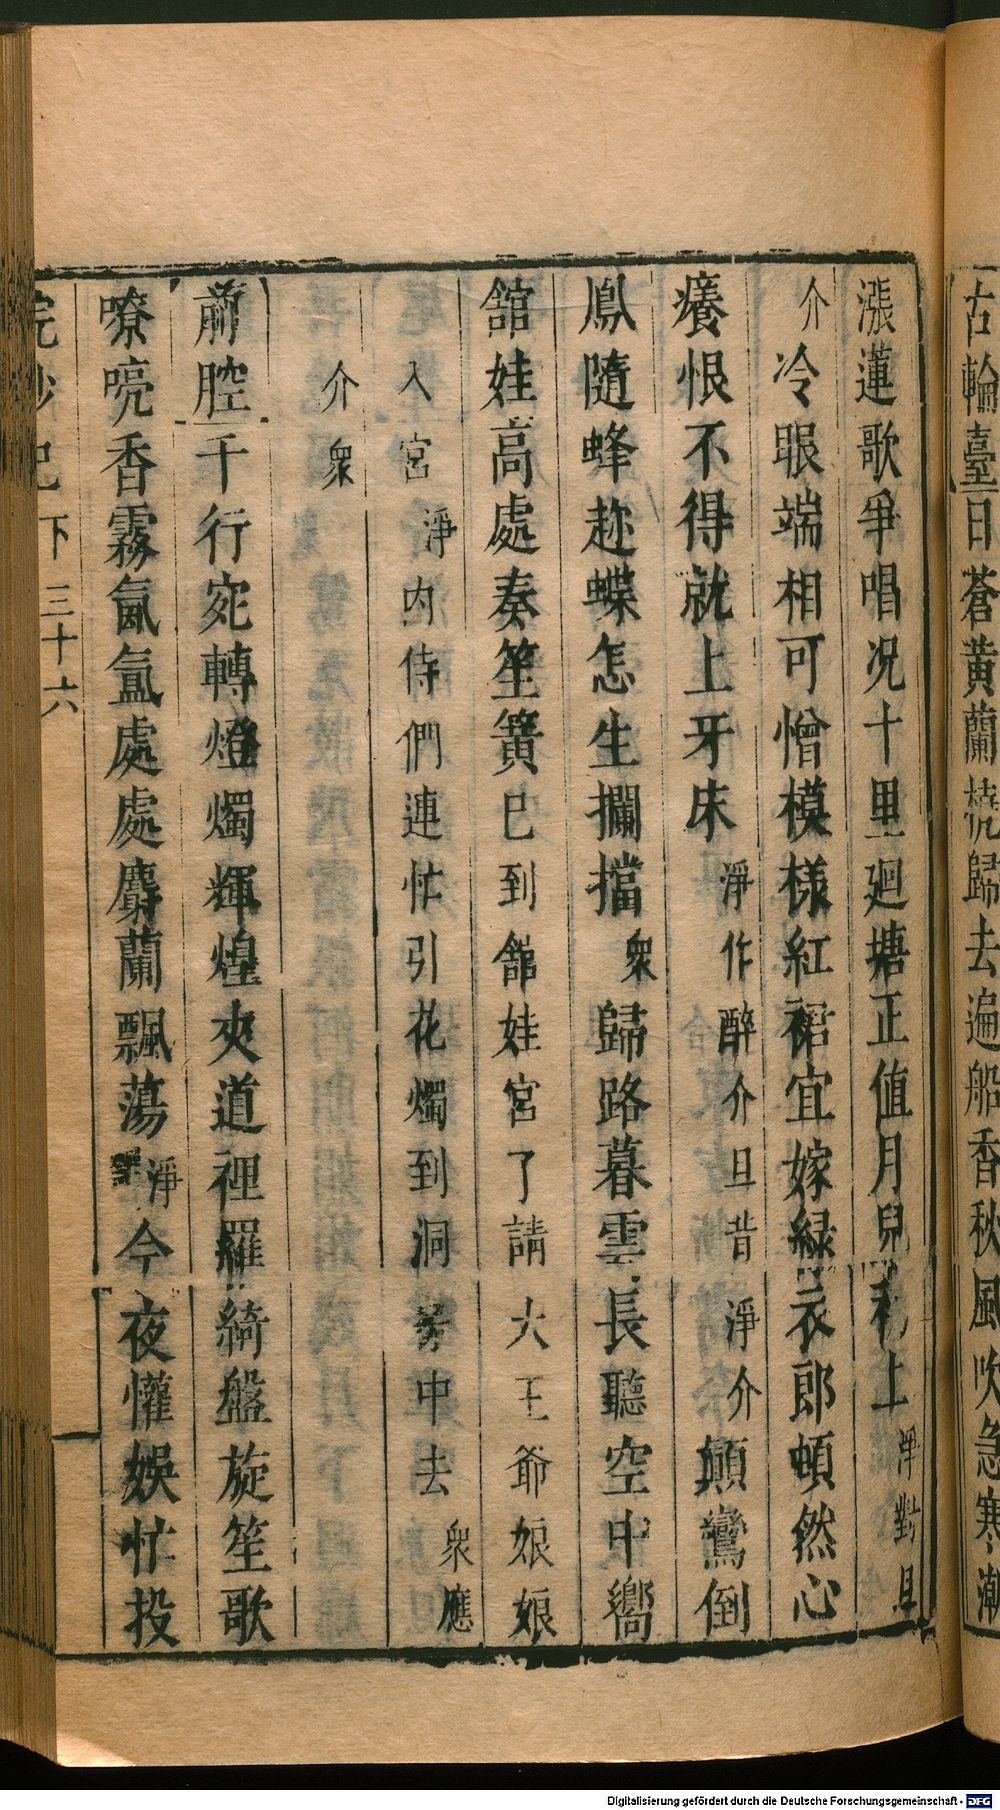 古輪臺日蒼黃蘭橈歸去遍船香秋風吹急寒潮
漲蓮歌爭唱況十里廻塘正值月兒初上淨對旦
介冷眼端相可憎模樣紅裙宜嫁綠衣郎頓然心
癢恨不得就上牙床淨作醉介旦昔淨介顛鸞倒
鳳隨蜂趂蝶怎生攔擋衆歸路暮雲長聽空中嚮
舘娃高處奏笙簧已到舘娃宮了請大王爺娘娘
入宮淨內侍們連忙引花燭到洞房中去衆應
介衆
前腔千行宛轉燈燭輝煌夾道裡羅綺盤旋笙歌
嘹喨香霧氤氳處處麝蘭飄蕩淨今夜懽娛忙投
浣紗記下三十六
Digitalisierung gefördert durch die Deutsche Forschungsgemeinschaft - DFG